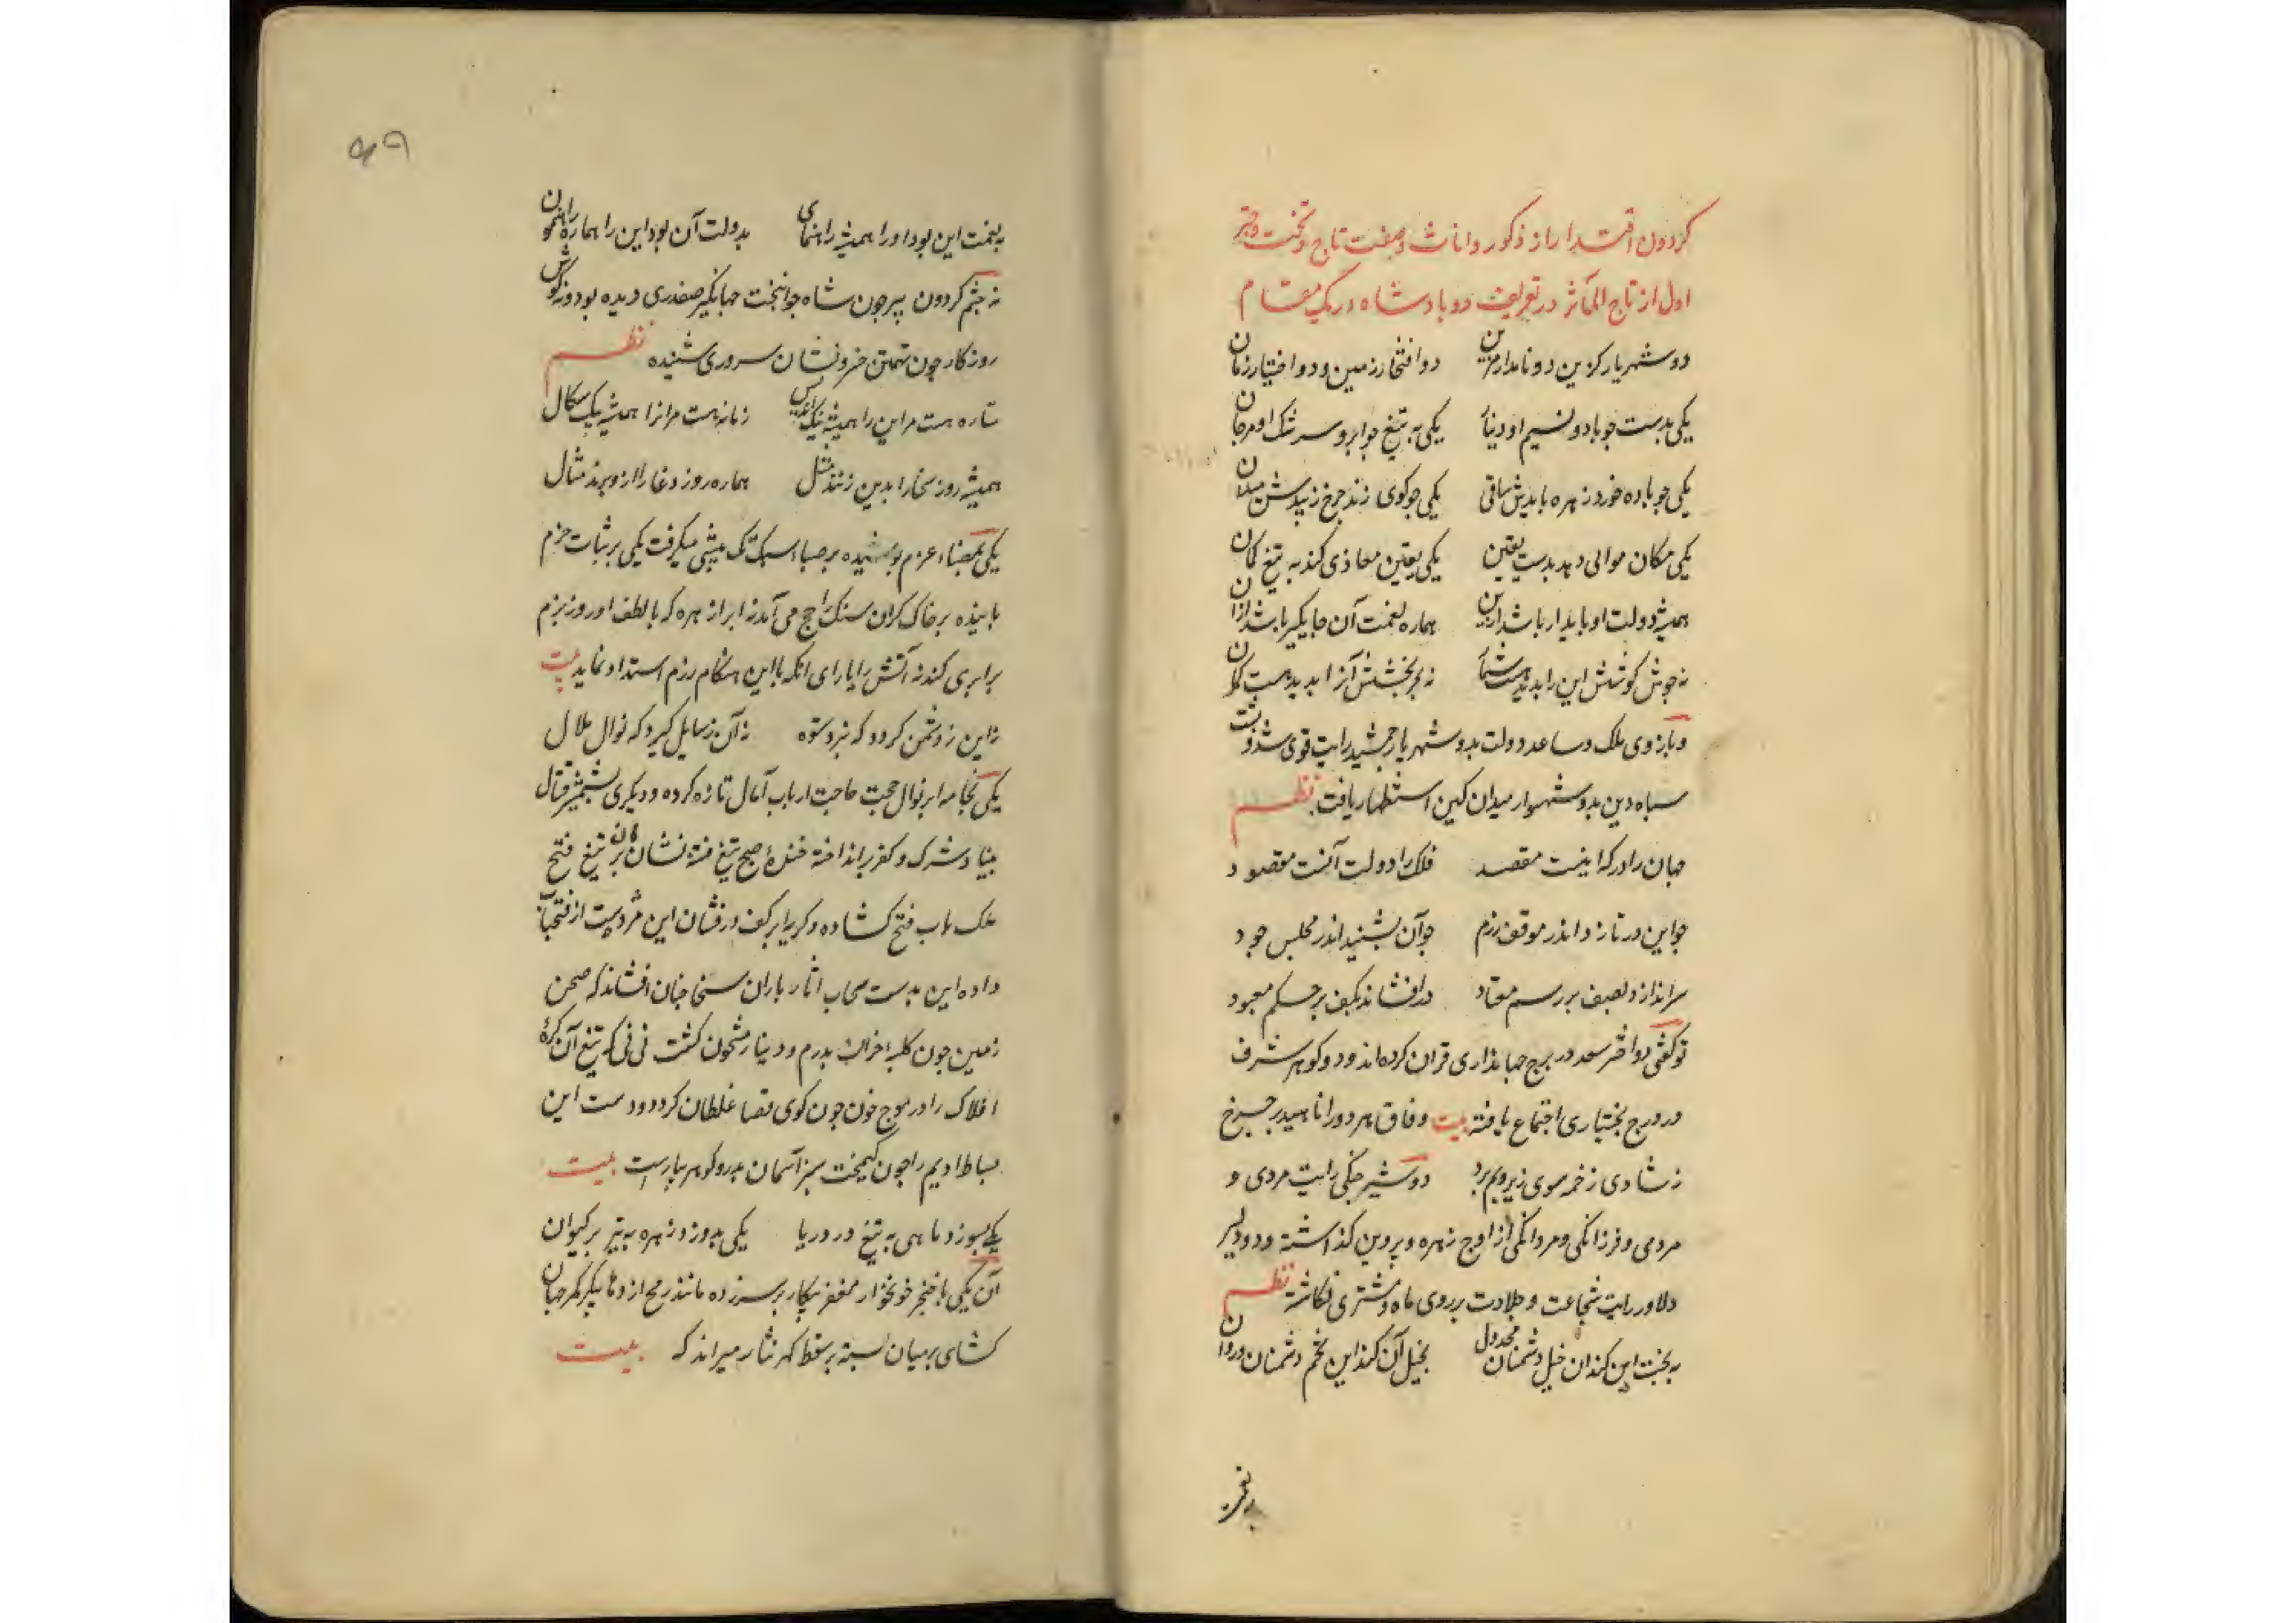 گردون اقتدار از ذکور و اناث و صفت تاج و تخت و چتر
اول از تاج المآثر در تعریف دو بادشاه در یک مقام
دو شهریار کزین دو نامدار مزین دو افتخار زمین و دو اختیار زمان
یکی بدست جو باد و نسیم او دینار یکی به تیغ جو ابر و سرشک او مرجان
یکی جو باده خورد زهره بایدش ساقی یکی جو کوی زند جرخ زیبدش میدان
یکی مکان موالی دهد بدست یقین یکی یقین معادی کند به تیغ کمان
همیشه دولت او بایدار باشد ازین هماره نعمت آن جایکیر باشد ازان
نه جوش کوشش این را بدید هست شمار نه بحر بخشش آنرا بدید هست کران
و بازوی ملک و ساعد دولت بدو شهریار جمشید رایت قوی شد و بشت
سباه دین بدو شهسوار میدان کین استظهار یافت نظم
جهان را در که اینست مقصد فلک را دولت آنست مقصود
جو این در تازد اندر موقف رزم جو آن بنشیند اندر مجلس جود
سر اندازد بصف بر رسم معتاد در افشاند بکف بر حسکم معهود
تو گفتی دو اختر سعد در برج جهانداری قران کرده‌اند و دو کوهر شرف
در درج بختیاری اجتماع یافته بیت وفاق هر دو را ناهید بر جرخ
ز شادی زخمه سوی زیر و بم برد دو شیر جنکی رایت مردی و
مردمی و فرزانکی و مردانکی از اوج زهره و پروین کذاشته و دو دلیر
دلاور رایت شجاعت و جلادت بر روی ماه و مشتری نکاشته نظم
به بخت این کند آن خیل دشمنان مخذول بخیل آن کند این تخم دشمنان
به نعمت
۴۹
به نعمت این بود او را همیشه راهنمای بدولت آن بود این را هماره راهنمون
نه جشم کردون پیر جون شاه جوانبخت جهانکیر صفدری دیده بود و نه کوش
روزکار جون تهمتن خسرو نشان سروری شنیده نظم
ستاره هست مر این را همیشه نیک اندیش زمانه هست مر آنرا همیشه نیک سکال
همیشه روز سخا را بدین زنند مثل هماره روز وغا را ازو برند مثال
یکی بمضاء عزم بوشیده بر صباء سبک تک پیشی میکرفت یکی بر ثبات حزم
باینده بر خاک کران سنک راجح می آمد نه ابر از زهره که با لطف او روز بزم
برابری کند نه آتش را یارای آنکه با این هنکام رزم استداد نماید بیت
نه این ز دشمن کردد که نبرد ستوه نه آن ز سایل کیرد که نوال ملال
یکی بخامه ابر نوال حجت حاجت ارباب آمال تازه کرده و دیکری بشمشیر قتال
بنیاد شرک و کفر بر انداخته خنده صبح تیغ فتنه نشان آن بر تیغ فتح
ملک باب فتح کشاده و کریه ابر کف درفشان این مژده بدست از فتحیاب
داده این بدست سحاب آثار باران سخا جنان افشاند که صحن
زمین جون کلبه خزان بدرم و دینار مشحون کشت نی نی که تیغ آن کره
افلاک را در موج خون جون کوی قضا غلطان کرد و دست این
بساط ادیم را جون کیمخت سبز آسمان بدر و کوهر بیاراست بیت
یکی بسوزد ماهی به تیغ در دریا یکی بدوزد زهره به تیر بر کیوان
آن یکی با خنجر خونخوار مغفر پیکار بر سر زده مانند رمح اژدها پیکر کمر جهان
کشای بر میان بسته بر سقط کهر نثار میراند که بیت